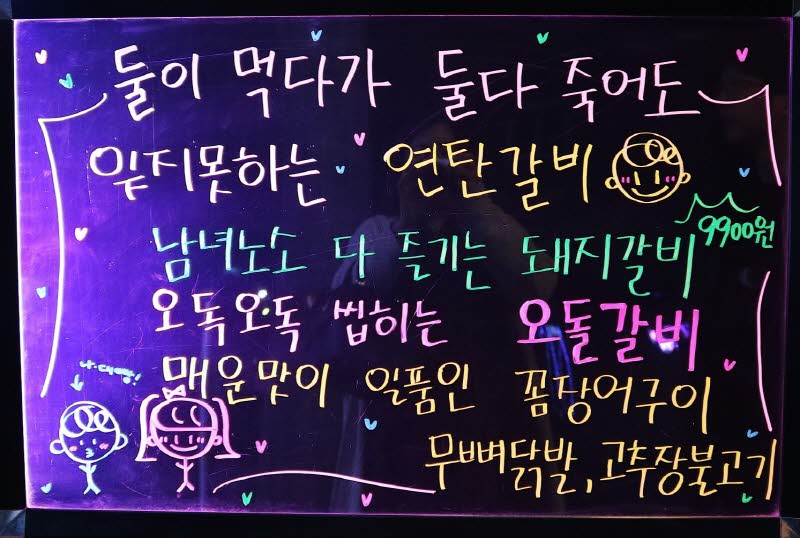 둘이 먹다가 둘다 죽어도
잊지못하는 연탄갈비
9900원
남녀노소 다 즐기는 돼지갈비
오독오독 씹히는 오돌갈비
매운맛이 일품인 꼼장어구이
무뼈닭발, 고추장불고기